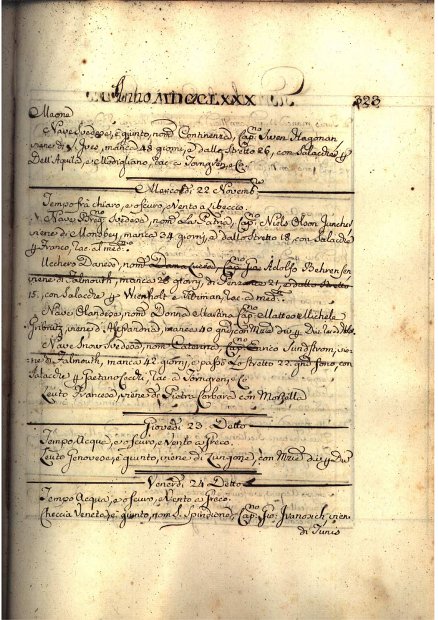 Anno MDCCLXXX
323
Maone
Nave Svedese, è giunto, nom.a Continenza, Cap.no Swen Hagonan,
viene di S. Ives, manca 48 giorni, e dallo Stretto 26, con Salacche p
Dell'Aquila e Modigliano, rac. a Torngren, e C.o
Mercoldì 22 Novemb.
Tempo frà chiaro, e oscuro, e Vento a Libeccio.
Nave Svedese, nom.a La Patria, Cap.no Niels Oloon
viene di manca 34 giorni, e dallo Stretto 18, con Salacche
p Franco, rac. al med.mo
Ucchero Danese, nom.o Cap.no Adolfo Behrensen
viene di Falmouth, manca 28 giorni, di Penzance 21, e dallo Stretto
15, con Salacche p Wienholt e rac. a med.
Nave Olandese, nom.a Donna Martina Cap.no Matteo Michela
viene d'Alessandria, manca 40 con p
Nave Snow Svedese, nom.a Catarina, Cap.no Enrico Sundstrom, vie-
ne di Falmouth, manca 42 giorni, e passò Lo Stretto 22 sono, con
Salacche p Gaetano rac. a Torngren, e C.o
Leuto Francese, viene di Pietra Corbara con
Giovedì 23 Detto
Tempo Acqua, e oscuro, e Vento a Greco.
Leuto Genovese, è giunto, viene di con di p
Venerdì 24 Detto
Tempo Acqua, e oscuro, e Vento a Greco.
Checcia Veneta, è giunto, nom. S. Spiridione, Cap.no Gio. Ivanovich, viene
di Tunis